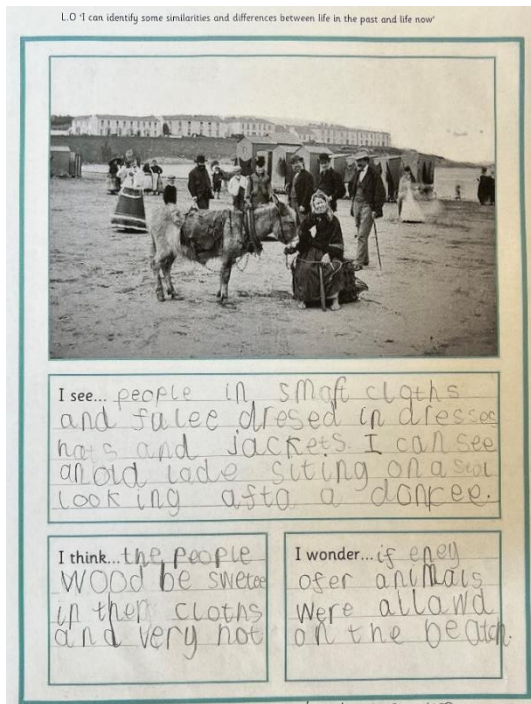 L.O 'I can identify some similarities and differences between life in the past and life now'
I see... people in smaft cloths
and fulee dresed in dresses
hats and jackets. I can see
an old lade siting on a
looking afta a donkee.
I think... the people
wood be swetee
in ther cloths
and very hot
I wonder... if eney
ofer animals
were allawd
on the beatch.